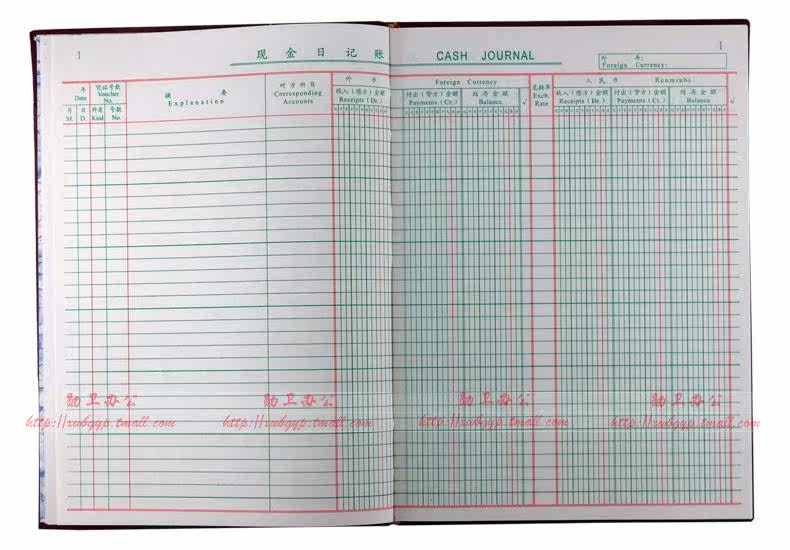 1
现金日记账 CASH JOURNAL
1
外 币:
Foreign Currency:
年
Date
凭证号数
Voucher
No.
月
M.
日
D.
种类
Kind
号数
No.
摘 要
Explanation
对方科目
Corresponding
Accounts
外 币
收入(借方)金额
Receipts (Dr.)
Foreign Currency
付出(贷方)金额
Payments (Cr.)
结存金额
Balance
√
兑换率
Exch.
Rate
人民币 Renminbi
收入(借方)金额
Receipts (Dr.)
付出(贷方)金额
Payments (Cr.)
结存金额
Balance
√
勋卫办公 勋卫办公 勋卫办公 勋卫办公
http://xwbgyp.tmall.com http://xwbgyp.tmall.com http://xwbgyp.tmall.com http://xwbgyp.tmall.com